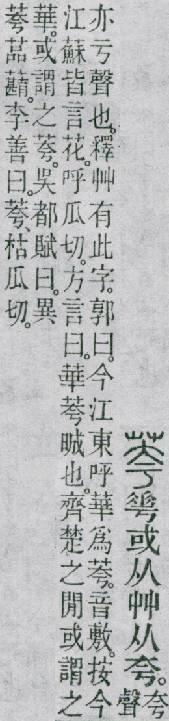 荂𠌶或从艸从夸。夸
聲
亦亏聲也。釋艸有此字。郭曰。今江東呼華爲荂。音敷。按今
江蘇皆言花。呼瓜切。方言曰。華荂晠也。齊楚之閒或謂之
華。或謂之荂。吳都賦曰。異
荂蓲蘛。李善曰。荂、枯瓜切。